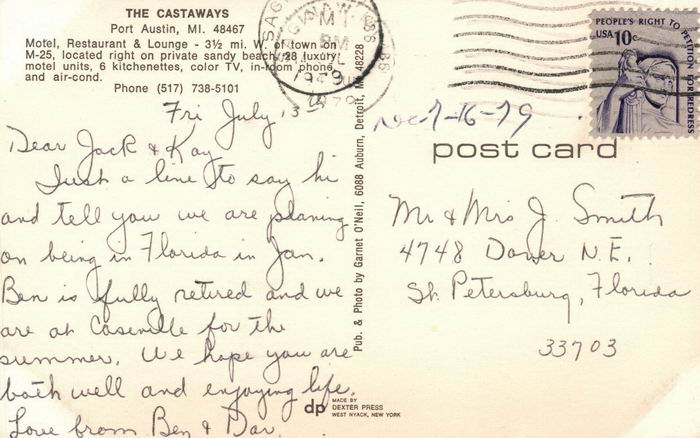 THE CASTAWAYS
Port Austin, MI. 48467
Motel, Restaurant & Lounge - 3½ mi. W. of town on
M-25, located right on private sandy beach, 28 luxury
motel units, 6 kitchenettes, color TV, in-room phone
and air-cond.
Phone (517) 738-5101
Fri July 13th
Dear Jack & Kay
Just a line to say hi
and tell you we are planing
on being in Florida in Jan.
Ben is fully retired and we
are at Caseville for the
summer. We hope you are
both well and enjoying life.
Love from Ben & Dar.
Pub. & Photo by Garnet O'Neil, 6088 Auburn, Detroit, MI. 48228
dp MADE BY
DEXTER PRESS
WEST NYACK, NEW YORK
SAGINAW
MI
PM
1979
PEOPLE'S RIGHT TO PETITION FOR REDRESS
USA 10c
7-16-79
post card
Mr & Mrs J. Smith
4748 Dover N.E.
St. Petersburg, Florida
33703